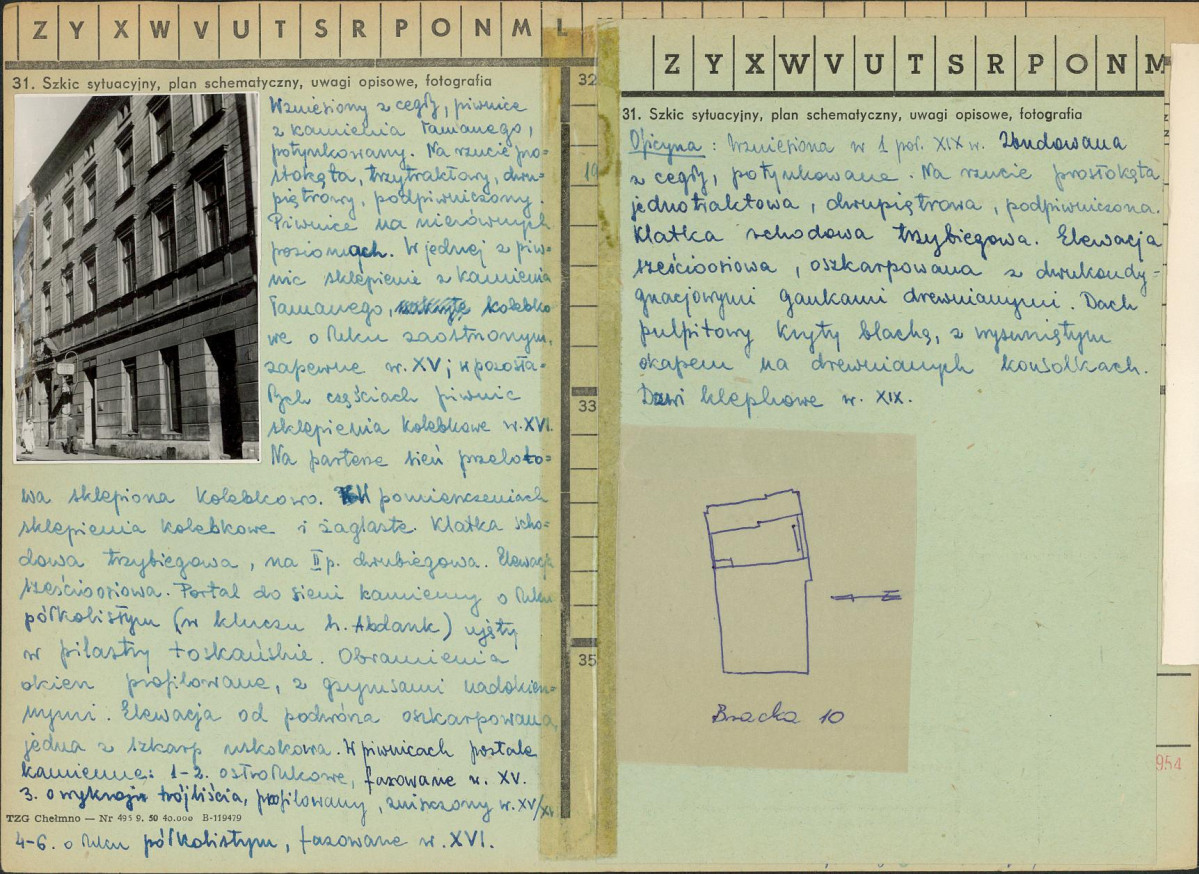 Z Y X W V U T S R P O N M L
31. Szkic sytuacyjny, plan schematyczny, uwagi opisowe, fotografia
Wzniesiony z cegły, piwnice
z kamienia łamanego,
potynkowany. Na rzucie pro-
stokąta, trzytraktowy, dwu-
piętrowy, podpiwniczony.
Piwnice na nierównych
poziomach. W jednej z piw-
nic sklepienie z kamienia
łamanego, kolebko
we o łuku zaostrzonym,
zapewne w. XV; w pozosta-
łych częściach piwnic
sklepienia kolebkowe w. XVI.
Na parterze sień przeloto-
wa sklepiona kolebkowo. W pomieszczeniach
sklepienia kolebkowe i żaglaste. Klatka scho-
dowa trzybiegowa, na II p. dwubiegowa. Elewacja
sześcioosiowa. Portal do sieni kamienny o łuku
półkolistym (w kluczu h. Abdank) ujęty
w pilastry toskańskie. Obramienia
okien profilowane, z gzymsami nadokien-
nymi. Elewacja od podwórza oszkarpowana,
jedna z szkarp uskokowa. W piwnicach portale
kamienne: 1-2. ostrołukowe, fazowane w. XV.
3. o wykroju trójliścia, profilowany, zniszczony w. XV/XVI
TZG Chełmno — Nr 495 9. 50 40.000 B-119479
4-6. o łuku półkolistym, fazowane w. XVI.
32
19
33
35
Z Y X W V U T S R P O N M
31. Szkic sytuacyjny, plan schematyczny, uwagi opisowe, fotografia
Oficyna: Wzniesiona w 1 poł. XIX w. Zbudowana
z cegły, potynkowana. Na rzucie prostokąta
jednotraktowa, dwupiętrowa, podpiwniczona.
Klatka schodowa trzybiegowa. Elewacja
sześcioosiowa, oszkarpowana z dwukondy-
gnacjowymi gankami drewnianymi. Dach
pulpitowy kryty blachą, z wysuniętym
okapem na drewnianych konsolkach.
Drzwi klepkowe w. XIX.
Bracka 10
954